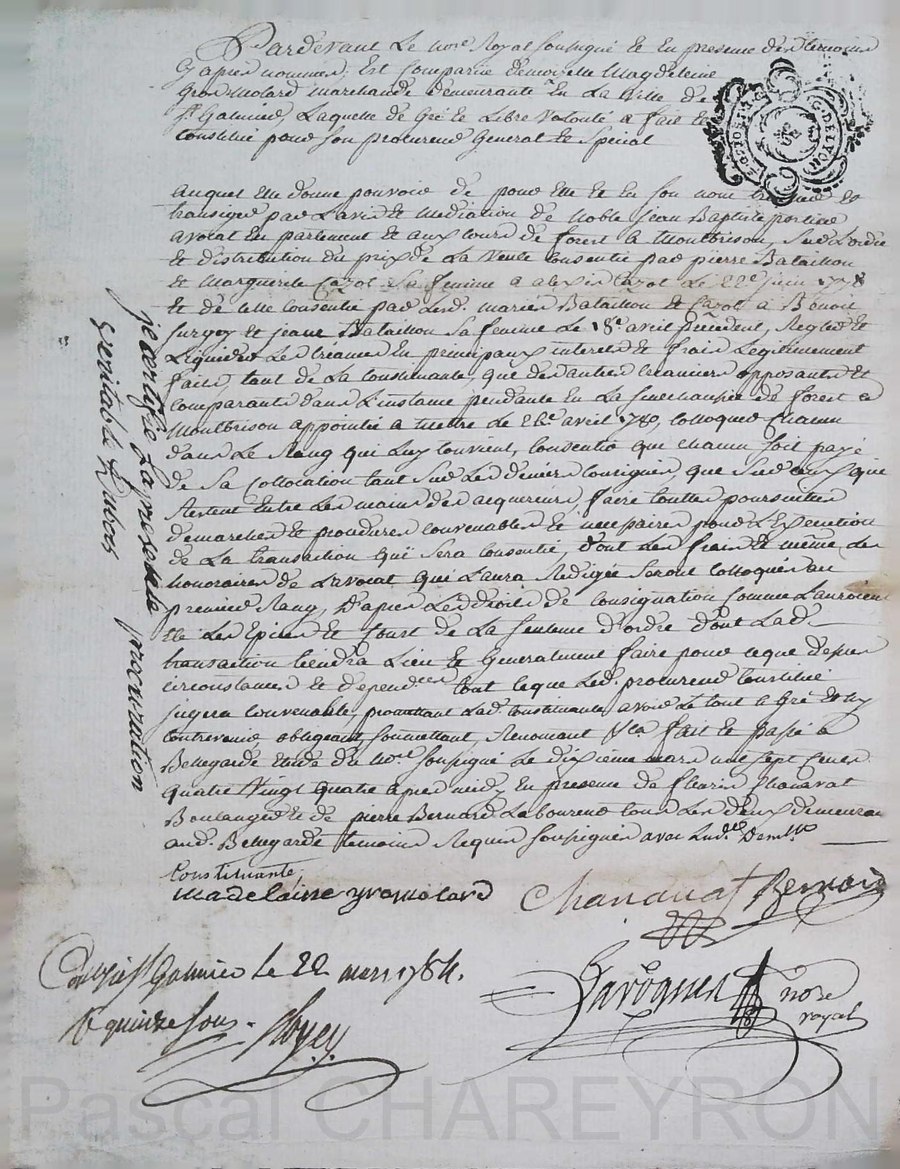 Pardevant Le nore Royal soussigné et en presence des temoins
cy apres nommés, Est Comparüe demoiselle Magdeleine
Gromolard Marchande demeurante En La Ville de
St Galmier, Laquelle de Gré et Libre Volonté a fait et
Constitué pour son procureur General et Special
G. DE LYON
auquel elle donne pouvoir de pour elle et en son nom et
transiger par L'avis et mediation de Noble Jean Baptiste portier
avocat en parlement et aux cours de forest a Montbrison, sur L'ordre
et distribution du prix de La Vente Consentie par pierre Bataillon
et Marguerite Cazot sa femme a alexis Cazot Le 22e juin 1778
et de celle Consentie par Lesd. mariés Bataillon et Cazot a Benoit
et jeanne Bataillon sa femme Le 18e avril precedent, Regler et
Liquider Les creances En principaux interets et frais Legitimement
faits, tant de La Constituante, que des autres creanciers opposants et
comparants dans L'instance pendante en La senechaussée de forest a
Montbrison appointée a mettre Le avril 1780, colloquer chacun
dans Le Rang qui Luy convient, consentir que chacun soit payé
de sa Collocation tant sur Les deniers consignés, que sur ceux qui
Restent entre Les mains des acquereurs, faire touttes poursuittes
demarches et procedures convenables et necessaires pour L'Execution
de La transaction qui sera Consentie, dont Les frais et même Les
honoraires de L'avocat qui L'aura Redigée seront colloqués au
premier Rang, d'apres Les droits de Consignation comme L'auroient
été Les Epices et de La sentence d'ordre dont Lad.
transaction tiendra Lieu et Generalement faire pour ce que dessus
circonstances et dependces tout ce que Led. procureur Constitué
jugera convenable, promettant Lad. Constituante avoir Le tout a Gré et n'y
contrevenir, obligeant soumettant, Renonçant &ca fait et passé a
Bellegarde etude du Nore soussigné Le dixieme mars mil sept Cens
quatre Vingt quatre apres midy En presence de fleury Chanavat
Boulanger et de pierre Bernard Laboureur tous Les deux demeurans
aud. Bellegarde temoins Requis soussignés avec Lad. Demlle
Constituante,
madelainne gromolard
Chanavat Bernard
nore
royal
Con
 St Galmier le 22 mars 1784.
R quinze sous.
je certifie La presente procuration
Pascal CHAREYRON